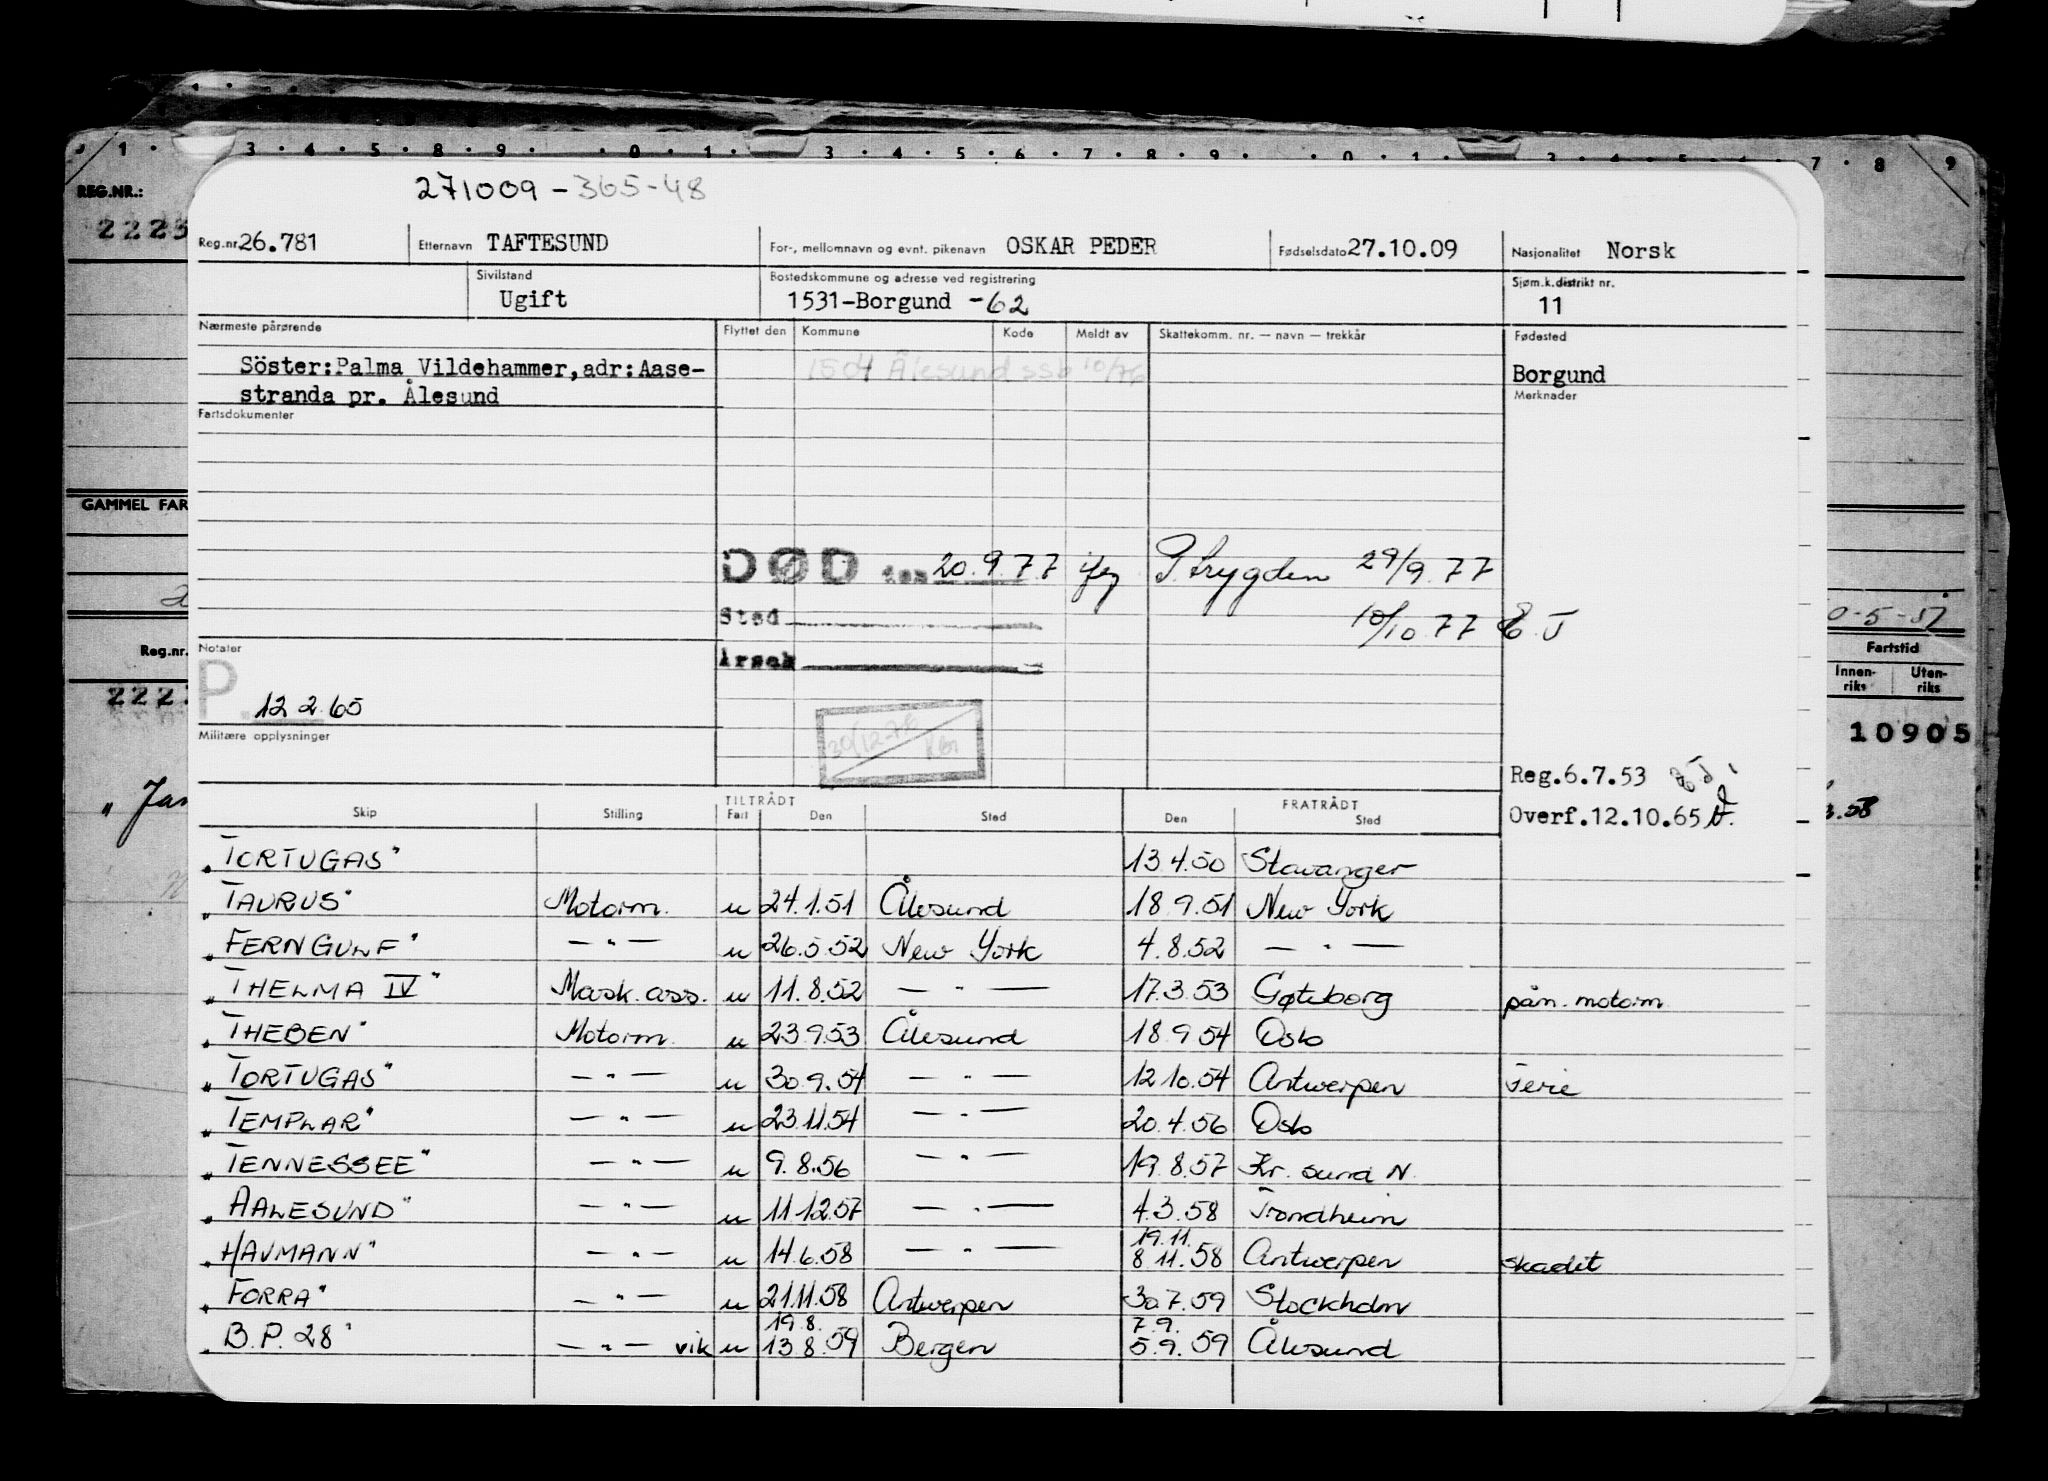 1 · 3 · 4 · 5 · 8 · 9 · · 0 · 1 · 3 · 4 · 5 · 6 · 7 · 8 · 9 · · 0 · 1 · 7 · 8 9
REG.NR.:
2223
271009 - 365-48
Reg.nr. 26.781 Etternavn TAFTESUND For-, mellomnavn og evnt. pikenavn OSKAR PEDER Fødselsdato 27.10.09 Nasjonalitet Norsk
Sivilstand Bostedskommune og adresse ved registrering Sjøm.k.distrikt nr.
Ugift 1531-Borgund -62 11
Nærmeste pårørende Flyttet den Kommune Kode Meldt av Skattekomm. nr. — navn — trekkår Fødested
Söster:Palma Vildehammer,adr:Aase- 1504 Ålesund ssb 10/76 Borgund
stranda pr. Ålesund Merknader
Fartsdokumenter
GAMMEL FAR
DØD den 20.9.77 P.trygden 29/9.77
Sted 10/10.77 E.J
Årsak
0-5-57
Reg.nr. Notater Fartstid
Innen-riks Uten-riks
222
P. 12 2 65
Militære opplysninger 30/12-76
10905
Reg.6.7.53
Overf.12.10.65
„Jan 58
Skip Stilling TILTRÅDT Fart Den Sted FRATRÅDT Den Sted
„TORTUGAS" 13.4.50 Stavanger
„TAURUS" Motorm. u 24.1.51 Ålesund 18.9.51 New York
„FERNGULF" — " — u 26.5.52 New York 4.8.52 — " —
„THELMA IV" Mask.ass. u 11.8.52 — " — 17.3.53 Gøteborg pån. motorm
„THEBEN" Motorm. u 23.9.53 Ålesund 18.9.54 Oslo
„TORTUGAS" — " — u 30.9.54 — " — 12.10.54 Antwerpen Ferie
„TEMPLAR" — " — u 23.11.54 — " — 20.4.56 Oslo
„TENNESSEE" — " — u 9.8.56 — " — 19.8.57 Kr. sund N.
„AALESUND" — " — u 11.12.57 — " — 4.3.58 Trondheim
19.11.
„HAVMANN" — " — u 14.6.58 — " — 8.11.58 Antwerpen skadet
„FORRA" — " — u 21.11.58 Antwerpen 30.7.59 Stockholm
19.8. 7.9.
„B.P. 28" — " — vik u 13.8.59 Bergen 5.9.59 Ålesund